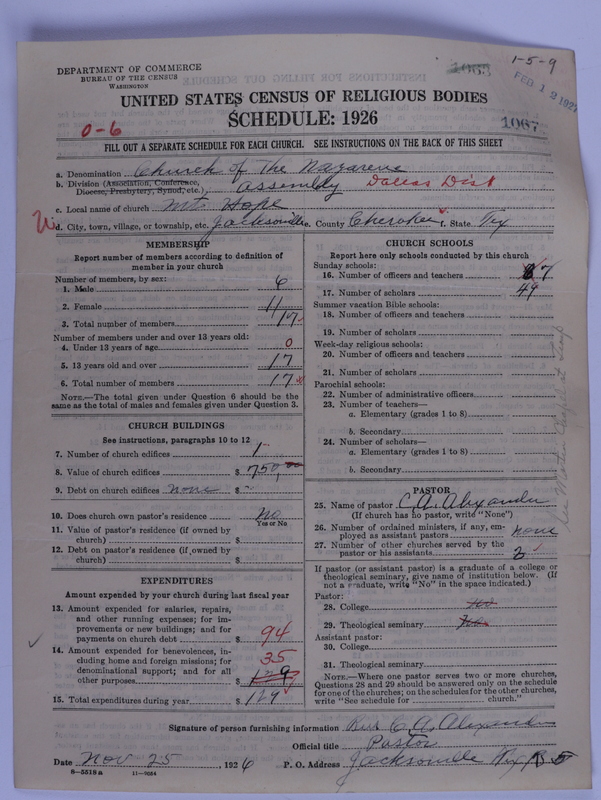 DEPARTMENT OF COMMERCE
BUREAU OF THE CENSUS
WASHINGTON
1065
1-5-9
FEB 12 1927
UNITED STATES CENSUS OF RELIGIOUS BODIES
SCHEDULE: 1926
1067
0-6
FILL OUT A SEPARATE SCHEDULE FOR EACH CHURCH. SEE INSTRUCTIONS ON THE BACK OF THIS SHEET
a. Denomination Church of The Nazarene
b. Division (Association, Conference, Diocese, Presbytery, Synod, etc.) assembly Dallas Dist
c. Local name of church Mt. Hope
d. City, town, village, or township, etc. Jacksonville e. County Cherokee f. State Tex
MEMBERSHIP
Report number of members according to definition of
member in your church
Number of members, by sex:
1. Male 6
2. Female 11
3. Total number of members 17
Number of members under and over 13 years old:
4. Under 13 years of age 0
5. 13 years old and over 17
6. Total number of members 17
NOTE.—The total given under Question 6 should be the
same as the total of males and females given under Question 3.
CHURCH BUILDINGS
See instructions, paragraphs 10 to 12
7. Number of church edifices 1
8. Value of church edifices $ 750.00
9. Debt on church edifices none $ -
10. Does church own pastor's residence No
Yes or No
11. Value of pastor's residence (if owned by
church) $
12. Debt on pastor's residence (if owned by
church) $
EXPENDITURES
Amount expended by your church during last fiscal year
13. Amount expended for salaries, repairs,
and other running expenses; for im-
provements or new buildings; and for
payments on church debt $ 94
14. Amount expended for benevolences, in-
cluding home and foreign missions; for
denominational support; and for all
other purposes $ 35 129
15. Total expenditures during year $ 129
CHURCH SCHOOLS
Report here only schools conducted by this church
Sunday schools:
16. Number of officers and teachers 7
17. Number of scholars 49
Summer vacation Bible schools:
18. Number of officers and teachers
19. Number of scholars
Week-day religious schools:
20. Number of officers and teachers
21. Number of scholars
Parochial schools:
22. Number of administrative officers
23. Number of teachers—
a. Elementary (grades 1 to 8)
b. Secondary
24. Number of scholars—
a. Elementary (grades 1 to 8)
b. Secondary
PASTOR
25. Name of pastor C. A. Alexander
(If church has no pastor, write "None")
26. Number of ordained ministers, if any, em-
ployed as assistant pastors none
27. Number of other churches served by the
pastor or his assistants 2
If pastor (or assistant pastor) is a graduate of a college or
theological seminary, give name of institution below. (If
not a graduate, write "No" in the space indicated.)
Pastor:
28. College No
29. Theological seminary No
Assistant pastor:
30. College
31. Theological seminary
NOTE.—Where one pastor serves two or more churches,
Questions 28 and 29 should be answered only on the schedule
for one of the churches; on the schedules for the other churches,
write "See schedule for church."
Signature of person furnishing information Rev C. A. Alexander
Official title Pastor
Date Nov 25, 1926 P. O. Address Jacksonville Tex R 5
8—5518 a 11—9054